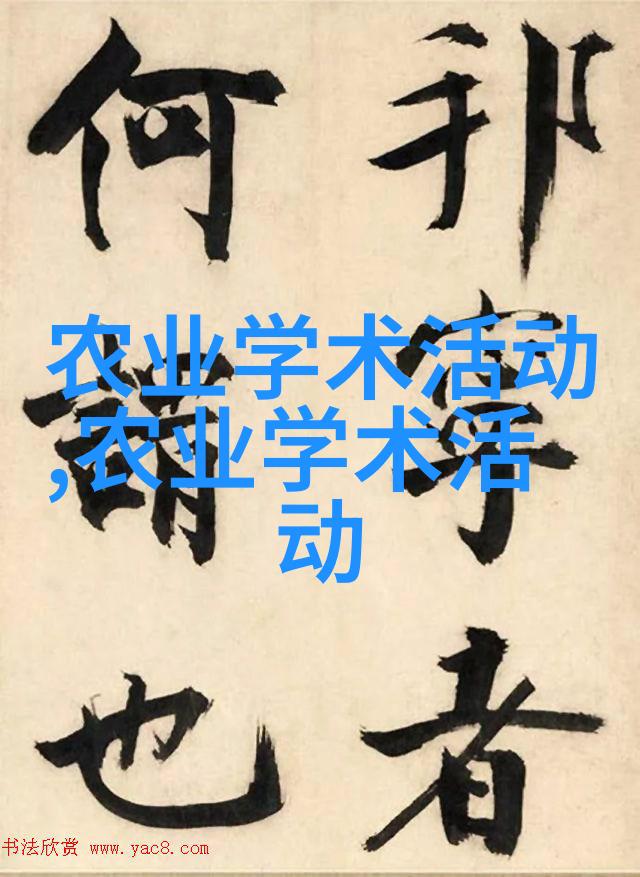 邦寧者
何謂也
农业学术活动
,农业学术活
动
书法欣赏 www.yac8.com